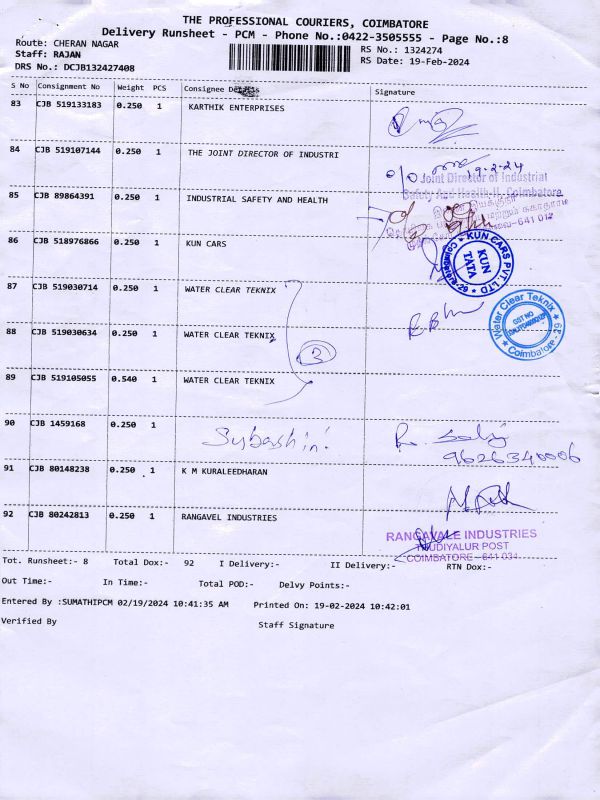 THE PROFESSIONAL COURIERS, COIMBATORE
Delivery Runsheet - PCM - Phone No.:0422-3505555 - Page No.:8
Route: CHERAN NAGAR
Staff: RAJAN
DRS No.: DCJB132427408
RS No.: 1324274
RS Date: 19-Feb-2024
S No Consignment No Weight PCS Consignee Details Signature
83 CJB 519133183 0.250 1 KARTHIK ENTERPRISES
84 CJB 519107144 0.250 1 THE JOINT DIRECTOR OF INDUSTRI
19-2-24
Joint Director of Industrial
Safety And Health-II, Coimbatore
85 CJB 89864391 0.250 1 INDUSTRIAL SAFETY AND HEALTH
641 012
86 CJB 518976866 0.250 1 KUN CARS
KUN CARS PVT. LTD
KUN
TATA
87 CJB 519030714 0.250 1 WATER CLEAR TEKNIX
Water Clear Teknix
GST NO
Coimbatore - 29
88 CJB 519030634 0.250 1 WATER CLEAR TEKNIX
3
89 CJB 519105055 0.540 1 WATER CLEAR TEKNIX
90 CJB 1459168 0.250 1 Subashini
9626340006
91 CJB 80148238 0.250 1 K M KURALEEDHARAN
92 CJB 80242813 0.250 1 RANGAVEL INDUSTRIES
RANGAVALE INDUSTRIES
THUDIYALUR POST
COIMBATORE - 641 034
Tot. Runsheet:- 8 Total Dox:- 92 I Delivery:- II Delivery:- RTN Dox:-
Out Time:- In Time:- Total POD:- Delvy Points:-
Entered By :SUMATHIPCM 02/19/2024 10:41:35 AM Printed On: 19-02-2024 10:42:01
Verified By Staff Signature